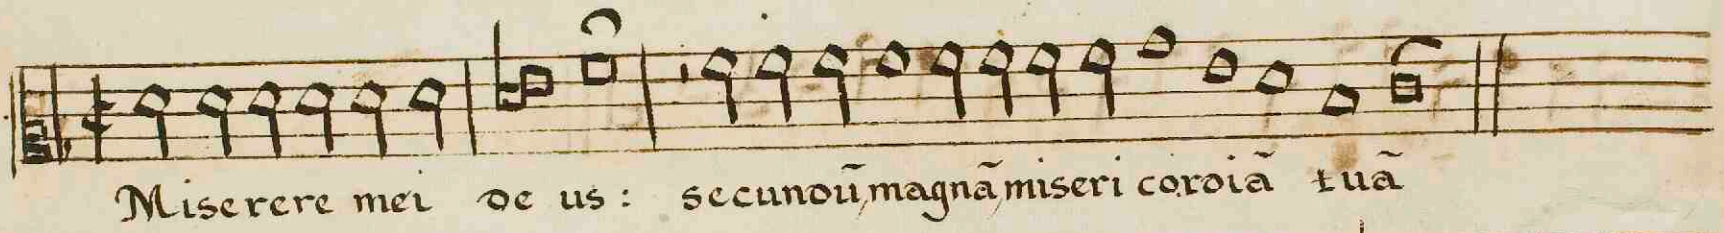 Miserere mei de us: secundũ, magnã, miseri cordiã tuã